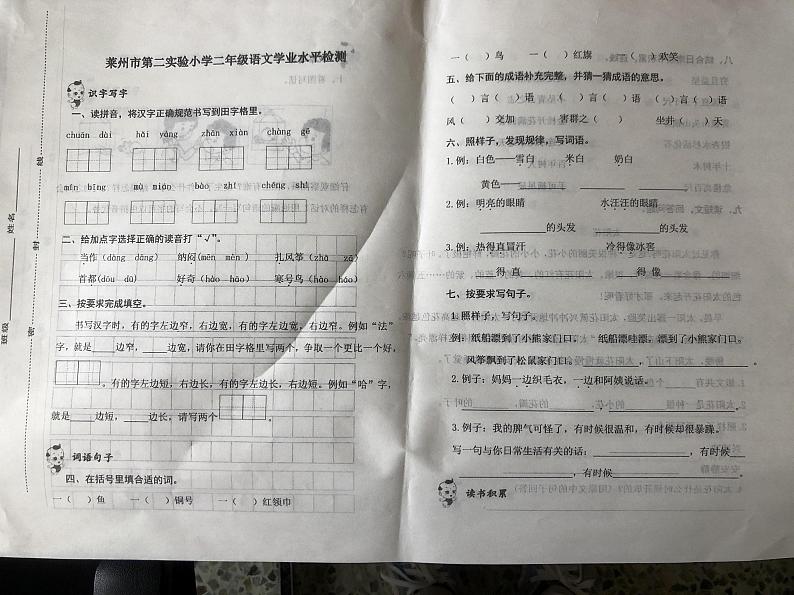 莱州市第二实验小学二年级语文学业水平检测
识字写字
一、读拼音,将汉字正确规范书写到田字格里。
chuān dài hǎi yáng zhǎn xiàn chàng gē
mín bīng mù miáo bào zhǐ chéng shí
二、给加点字选择正确的读音打“√”。
当作(dàng dāng) 纳闷(mēn mèn) 扎风筝(zhā zā)
首都(dōu dū) 好奇(hào hǎo) 寒号鸟(hào háo)
三、按要求完成填空。
书写汉字时,有的字左边窄,右边宽,有的字左边宽,右边窄。例如“法”
字,就是____边窄,____边宽,请你在田字格里写两个,争取一个更比一个好,
。有的字左边短,右边长,有的字左边长,右边短。例如“哈”字,
就是____边短,____边长,请写两个 。
词语句子
四、在括号里填合适的词。
一( )鱼 一( )铜号 一( )红领巾
一( )鸟 一( )红旗 一( )欢笑
五、给下面的成语补充完整,并猜一猜成语的意思。
( )言( )语 ( )言( )语 ( )言( )语
风( )交加 害群之( ) 坐井( )天
六、照样子,发现规律,写词语。
1.例:白色——雪白 米白 奶白
黄色—— ______ ______ ______
2.例:明亮的眼睛 水汪汪的眼睛
__________的头发 __________的头发
3.例:热得直冒汗 冷得像冰窖
____得 直____ ____得 像____
七、按要求写句子。
1.照样子,写句子。
例:纸船漂到了小熊家门口。 纸船漂哇漂,漂到了小熊家门口。
风筝飘到了松鼠家门口。
2.例子:妈妈一边织毛衣,一边和阿姨说话。
3.例子:我的脾气可怪了,有时候很温和,有时候却很暴躁。
写一句与你日常生活有关的话:__________,有时候____
__________,有时候__________。
读书积累
班级
姓名
密
封
线